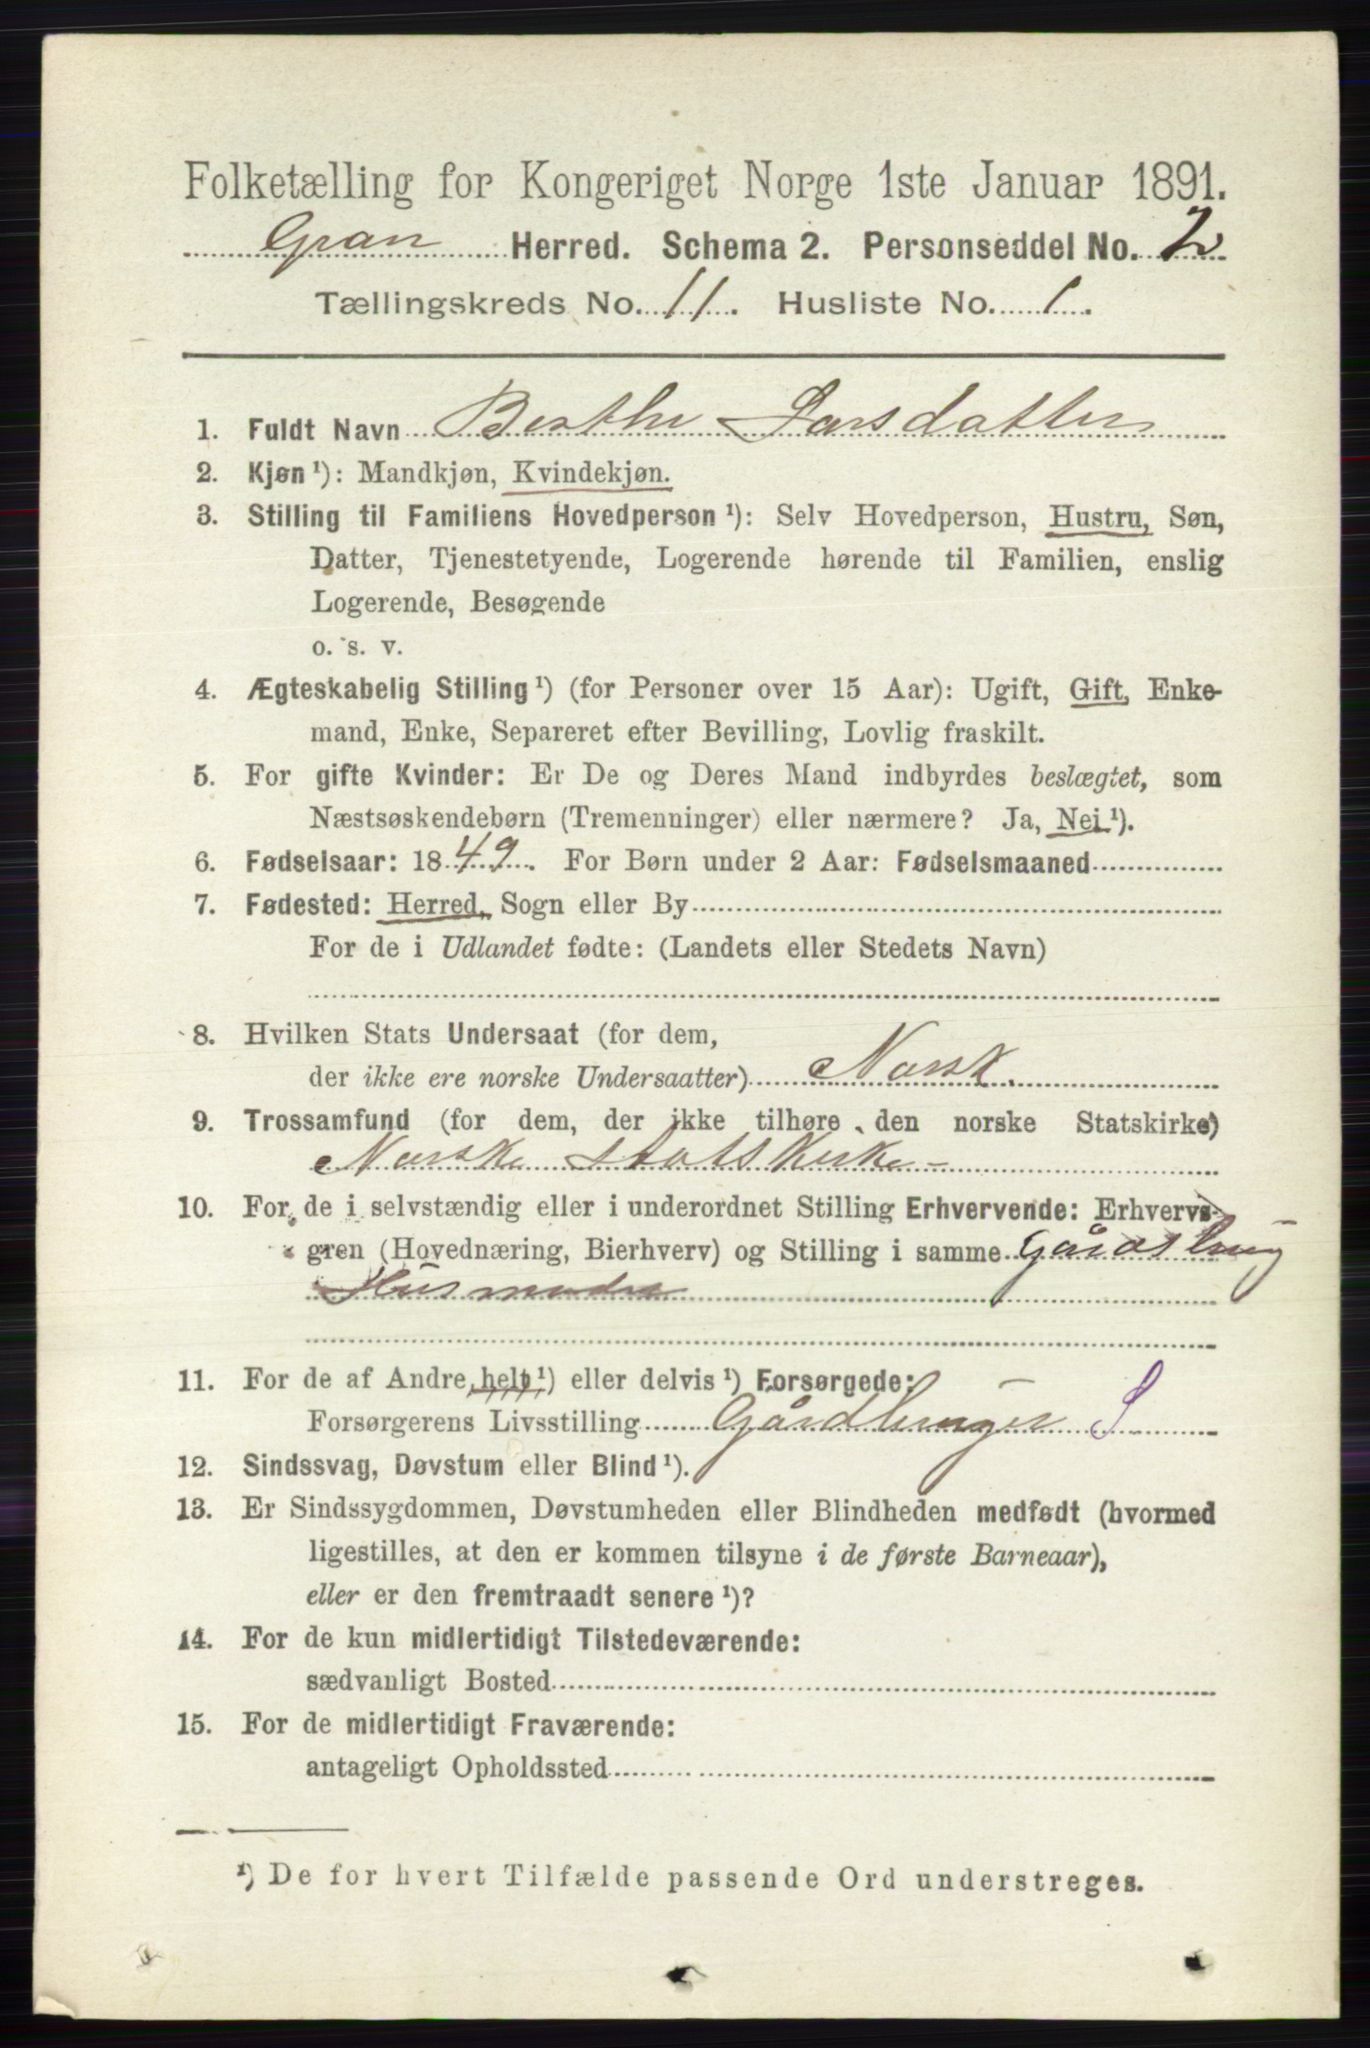 Folketælling for Kongeriget Norge 1ste Januar 1891.
Gran Herred. Schema 2. Personseddel No. 2
Tællingskreds No. 11. Husliste No. 1.
1. Fuldt Navn Berthe Larsdatter
2. Kjøn ¹): Mandkjøn, Kvindekjøn.
3. Stilling til Familiens Hovedperson ¹): Selv Hovedperson, Hustru, Søn,
Datter, Tjenestetyende, Logerende hørende til Familien, enslig
Logerende, Besøgende
o. s. v.
4. Ægteskabelig Stilling ¹) (for Personer over 15 Aar): Ugift, Gift, Enke-
mand, Enke, Separeret efter Bevilling, Lovlig fraskilt.
5. For gifte Kvinder: Er De og Deres Mand indbyrdes beslægtet, som
Næstsøskendebørn (Tremenninger) eller nærmere? Ja, Nei ¹).
6. Fødselsaar: 1849. For Børn under 2 Aar: Fødselsmaaned
7. Fødested: Herred, Sogn eller By
For de i Udlandet fødte: (Landets eller Stedets Navn)
8. Hvilken Stats Undersaat (for dem,
der ikke ere norske Undersaatter) Norsk.
9. Trossamfund (for dem, der ikke tilhøre den norske Statskirke)
Norske statskirke
10. For de i selvstændig eller i underordnet Stilling Erhvervende: Erhvervs-
gren (Hovednæring, Bierhverv) og Stilling i samme Gårdsbrug
Husmoder
11. For de af Andre helt ¹) eller delvis ¹) Forsørgede:
Forsørgerens Livsstilling Gårdbruger S
12. Sindssvag, Døvstum eller Blind ¹).
13. Er Sindssygdommen, Døvstumheden eller Blindheden medfødt (hvormed
ligestilles, at den er kommen tilsyne i de første Barneaar),
eller er den fremtraadt senere ¹)?
14. For de kun midlertidigt Tilstedeværende:
sædvanligt Bosted
15. For de midlertidigt Fraværende:
antageligt Opholdssted
¹) De for hvert Tilfælde passende Ord understreges.